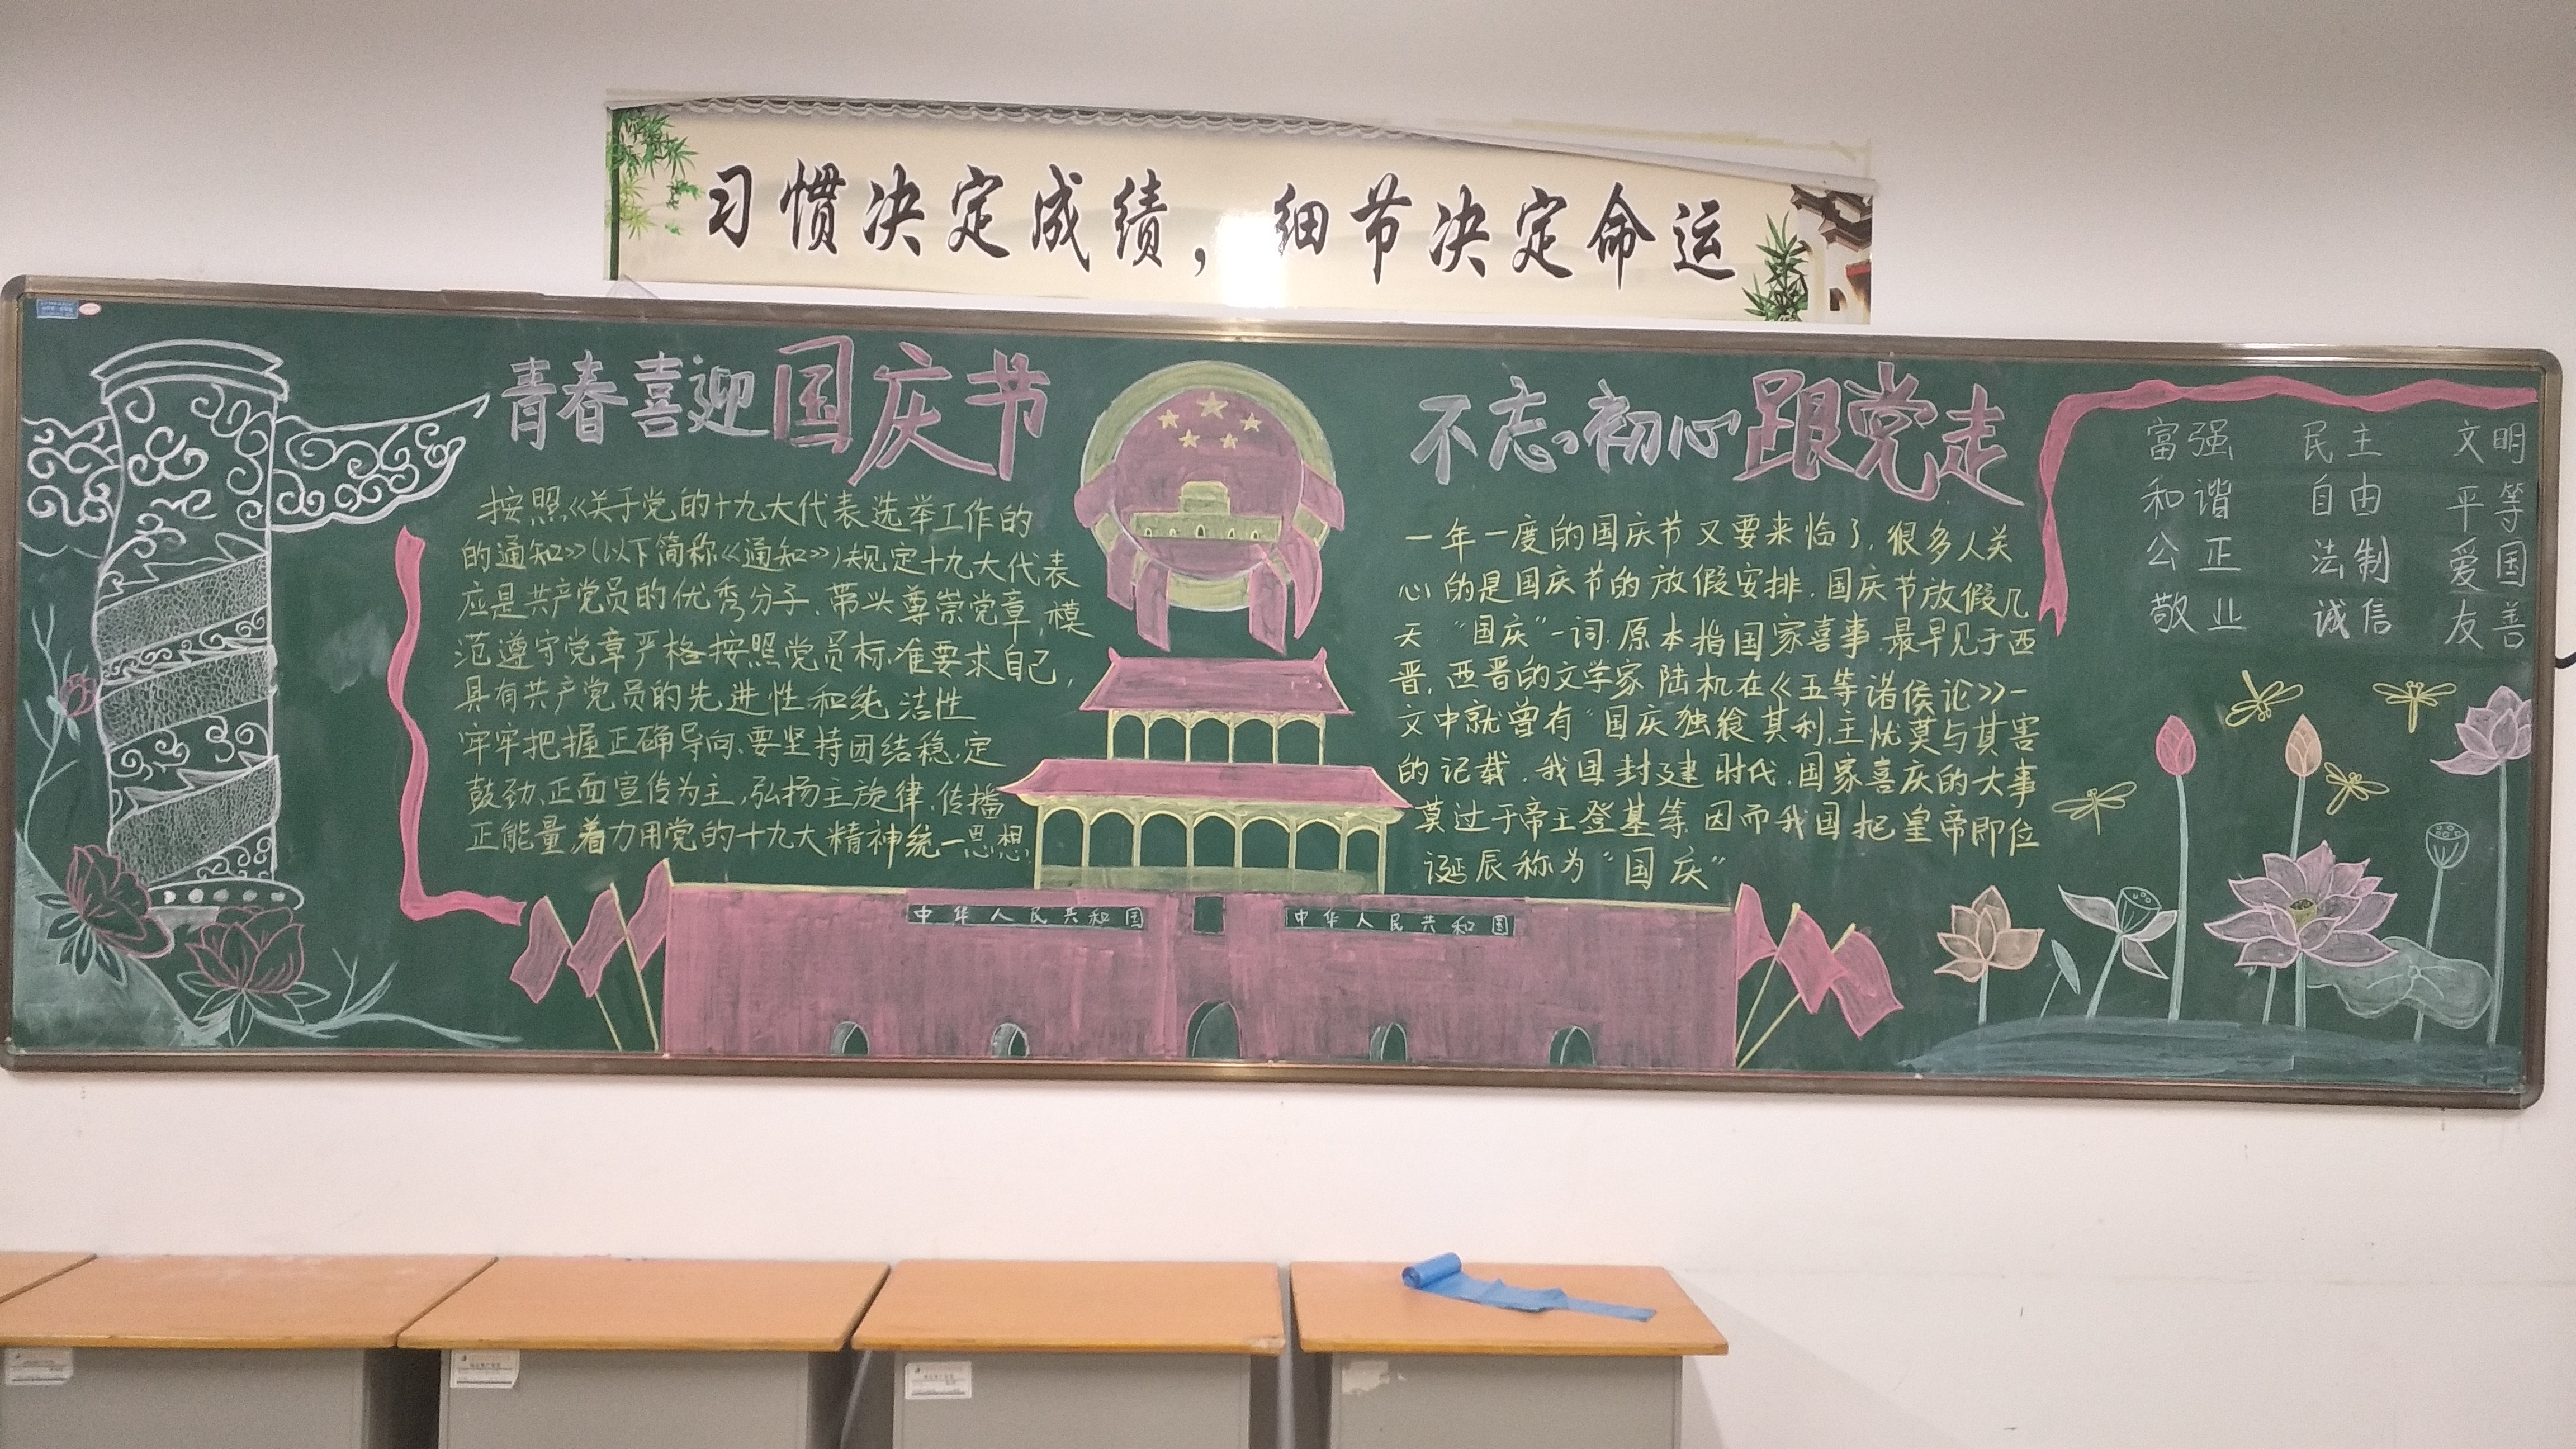 习惯决定成绩，细节决定命运
青春喜迎国庆节
按照《关于党的十九大代表选举工作的
的通知》(以下简称《通知》)规定十九大代表
应是共产党员的优秀分子、带头尊崇党章，模
范遵守党章严格按照党员标准要求自己，
具有共产党员的先进性和纯洁性
牢牢把握正确导向、要坚持团结稳定
鼓劲、正面宣传为主，弘扬主旋律、传播
正能量，着力用党的十九大精神统一思想，
不忘初心跟党走
一年一度的国庆节又要来临了，很多人关
心的是国庆节的放假安排，国庆节放假几
天 “国庆”一词，原本指国家喜事，最早见于西
晋，西晋的文学家陆机在《五等诸侯论》一
文中就曾有“国庆独飨其利，主忧莫与其害
的记载，我国封建时代，国家喜庆的大事
莫过于帝王登基等，因而我国把皇帝即位
诞辰称为“国庆”
富强 民主 文明
和谐 自由 平等
公正 法制 爱国
敬业 诚信 友善
中华人民共和国
中华人民共和国